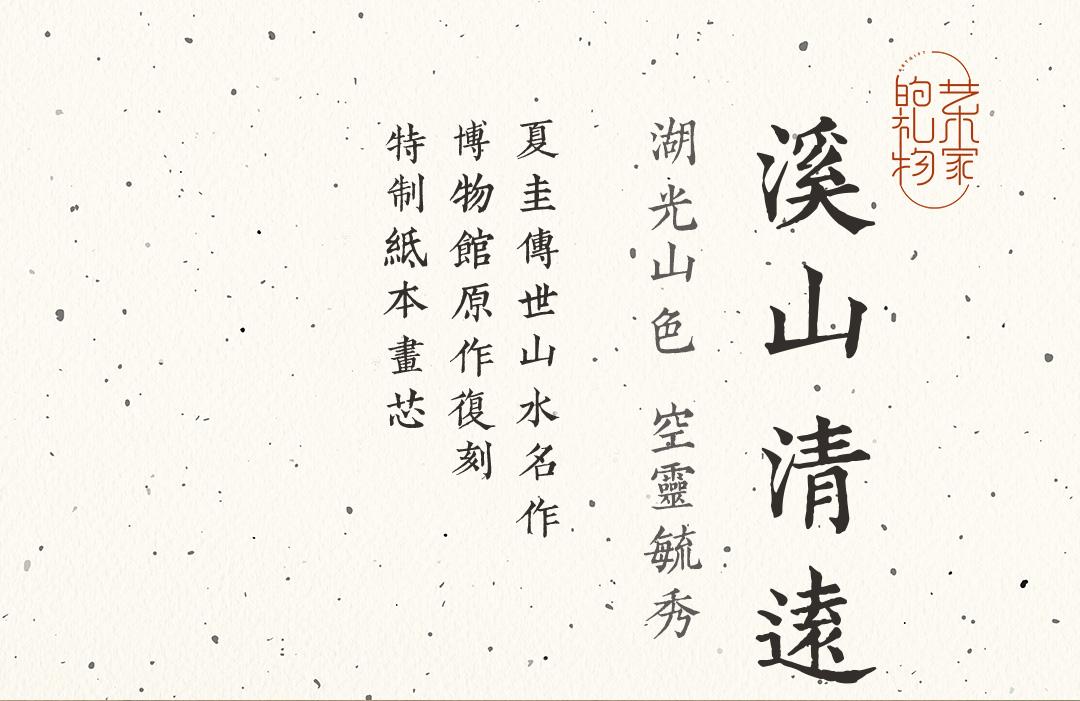 艺术家
的礼物
溪山清遠
湖光山色 空靈毓秀
夏圭傳世山水名作
博物館原作復刻
特制紙本畫芯